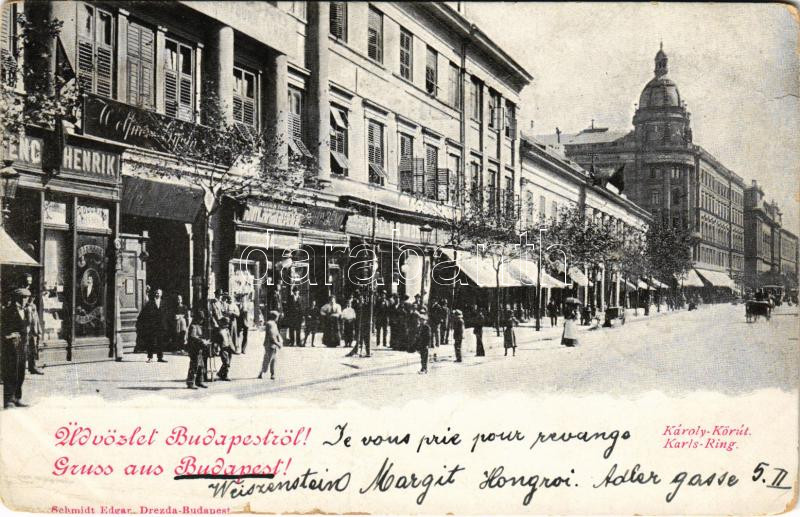 HENRIK
Üdvözlet Budapestről!
Gruss aus Budapest!
Je vous prie pour revange
Weiszenstein Margit Hongroi. Adler gasse 5. II
Károly-Körút.
Karls-Ring.
Schmidt Edgar, Drezda-Budapest
darabanth